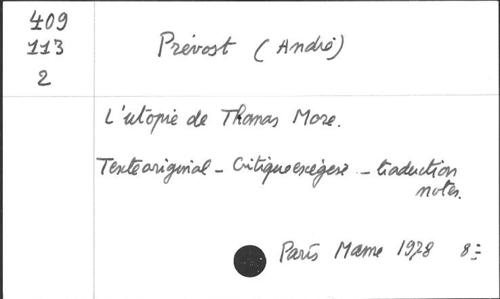 409
113
2
Prévost (André)
L'utopie de Thomas More.
Texte original - Critique exégèse - traduction
notes.
Paris Mame 1978 8=